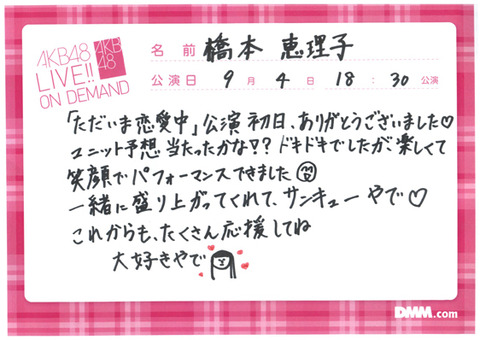 AKB48
LIVE!!
ON DEMAND
AKB
48
名前 橋本 恵理子
公演日 9月4日 18:30公演
「ただいま恋愛中」公演初日、ありがとうございました♡
ユニット予想当たったかな!? ドキドキでしたが楽しくて
笑顔でパフォーマンスできました
一緒に盛り上がってくれて、サンキューやで♡
これからも、たくさん応援してね
大好きやで
DMM.com